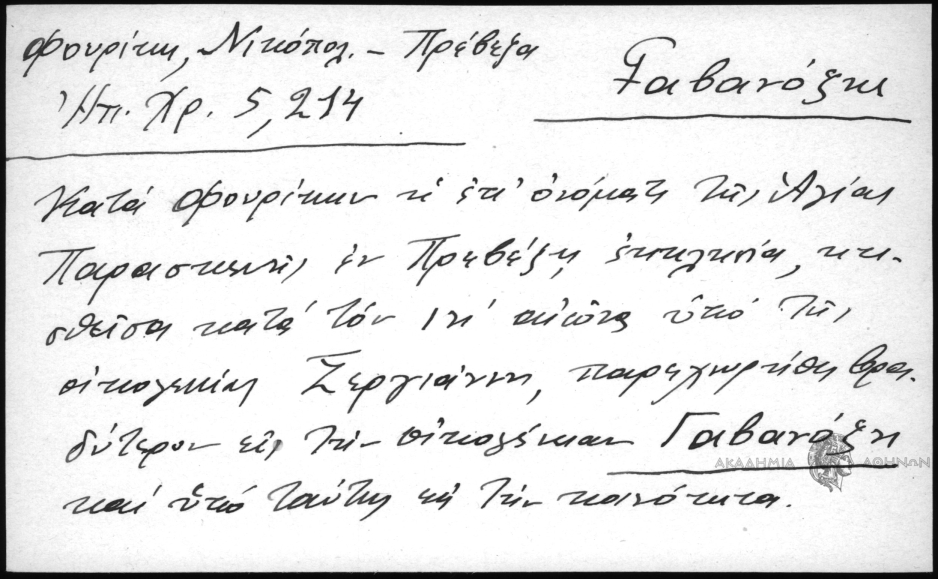 Φουρίκη, Νικόπολ. – Πρέβεζα
Γαβανόζης
Ἠπ. Χρ. 5, 214
Κατά Φουρίκην ἡ ἐπ' ὀνόματι τῆς Ἁγίας
Παρασκευῆς ἐν Πρεβέζῃ ἐκκλησία, κτι-
σθεῖσα κατά τόν ιη' αἰῶνα ὑπό τῆς
οἰκογενείας Ζεργιάννη, παρεχωρήθη βρα-
δύτερον εἰς τήν οἰκογένειαν Γαβανόζη
καί ὑπό ταύτης εἰς τήν κοινότητα.
ΑΚΑΔΗΜΙΑ ΑΘΗΝΩΝ